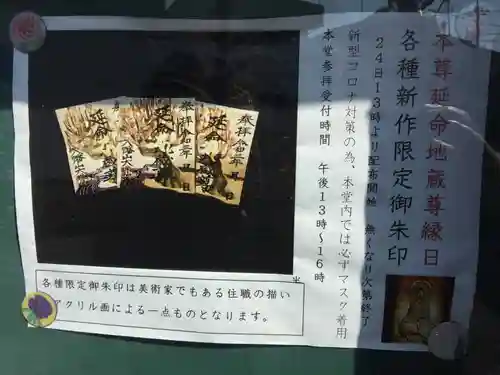 本尊延命地蔵尊縁日
各種新作限定御朱印
24日13時より配布開始 無くなり次第終了
新型コロナ対策の為、本堂内では必ずマスク着用
本堂参拝受付時間 午後13時〜16時
奉拝
延命
奉拝 令和
延命
奉拝 令和 年 月 日
延命
各種限定御朱印は美術家でもある住職の描い
アクリル画による一点ものとなります。